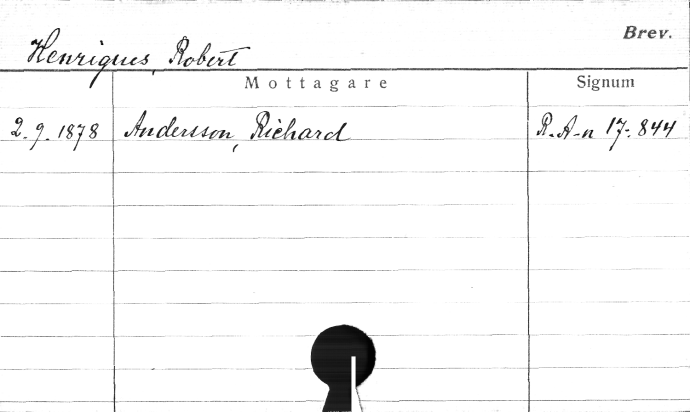 Brev.
Henriques, Robert
Mottagare Signum
2.9.1878 Andersson, Richard R.A-n 17-.844